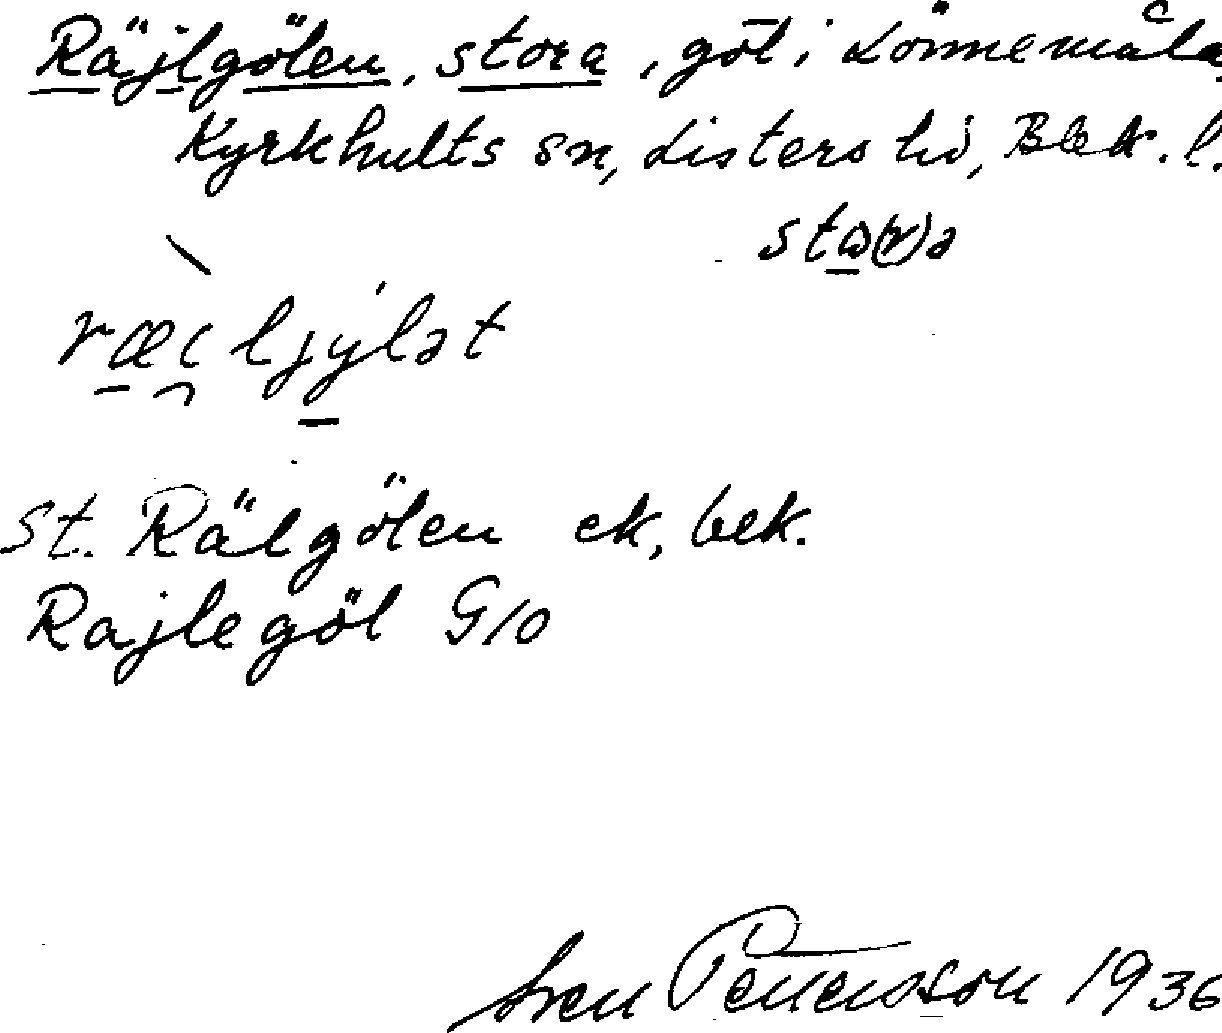 Räjlgölen, stora, göl i Lönnemåla,
Kyrkhults sn, Listers hd, Blek. l.
St. Rälgölen ek, bek.
Rajlegöl G10
Sven Petersson 1936